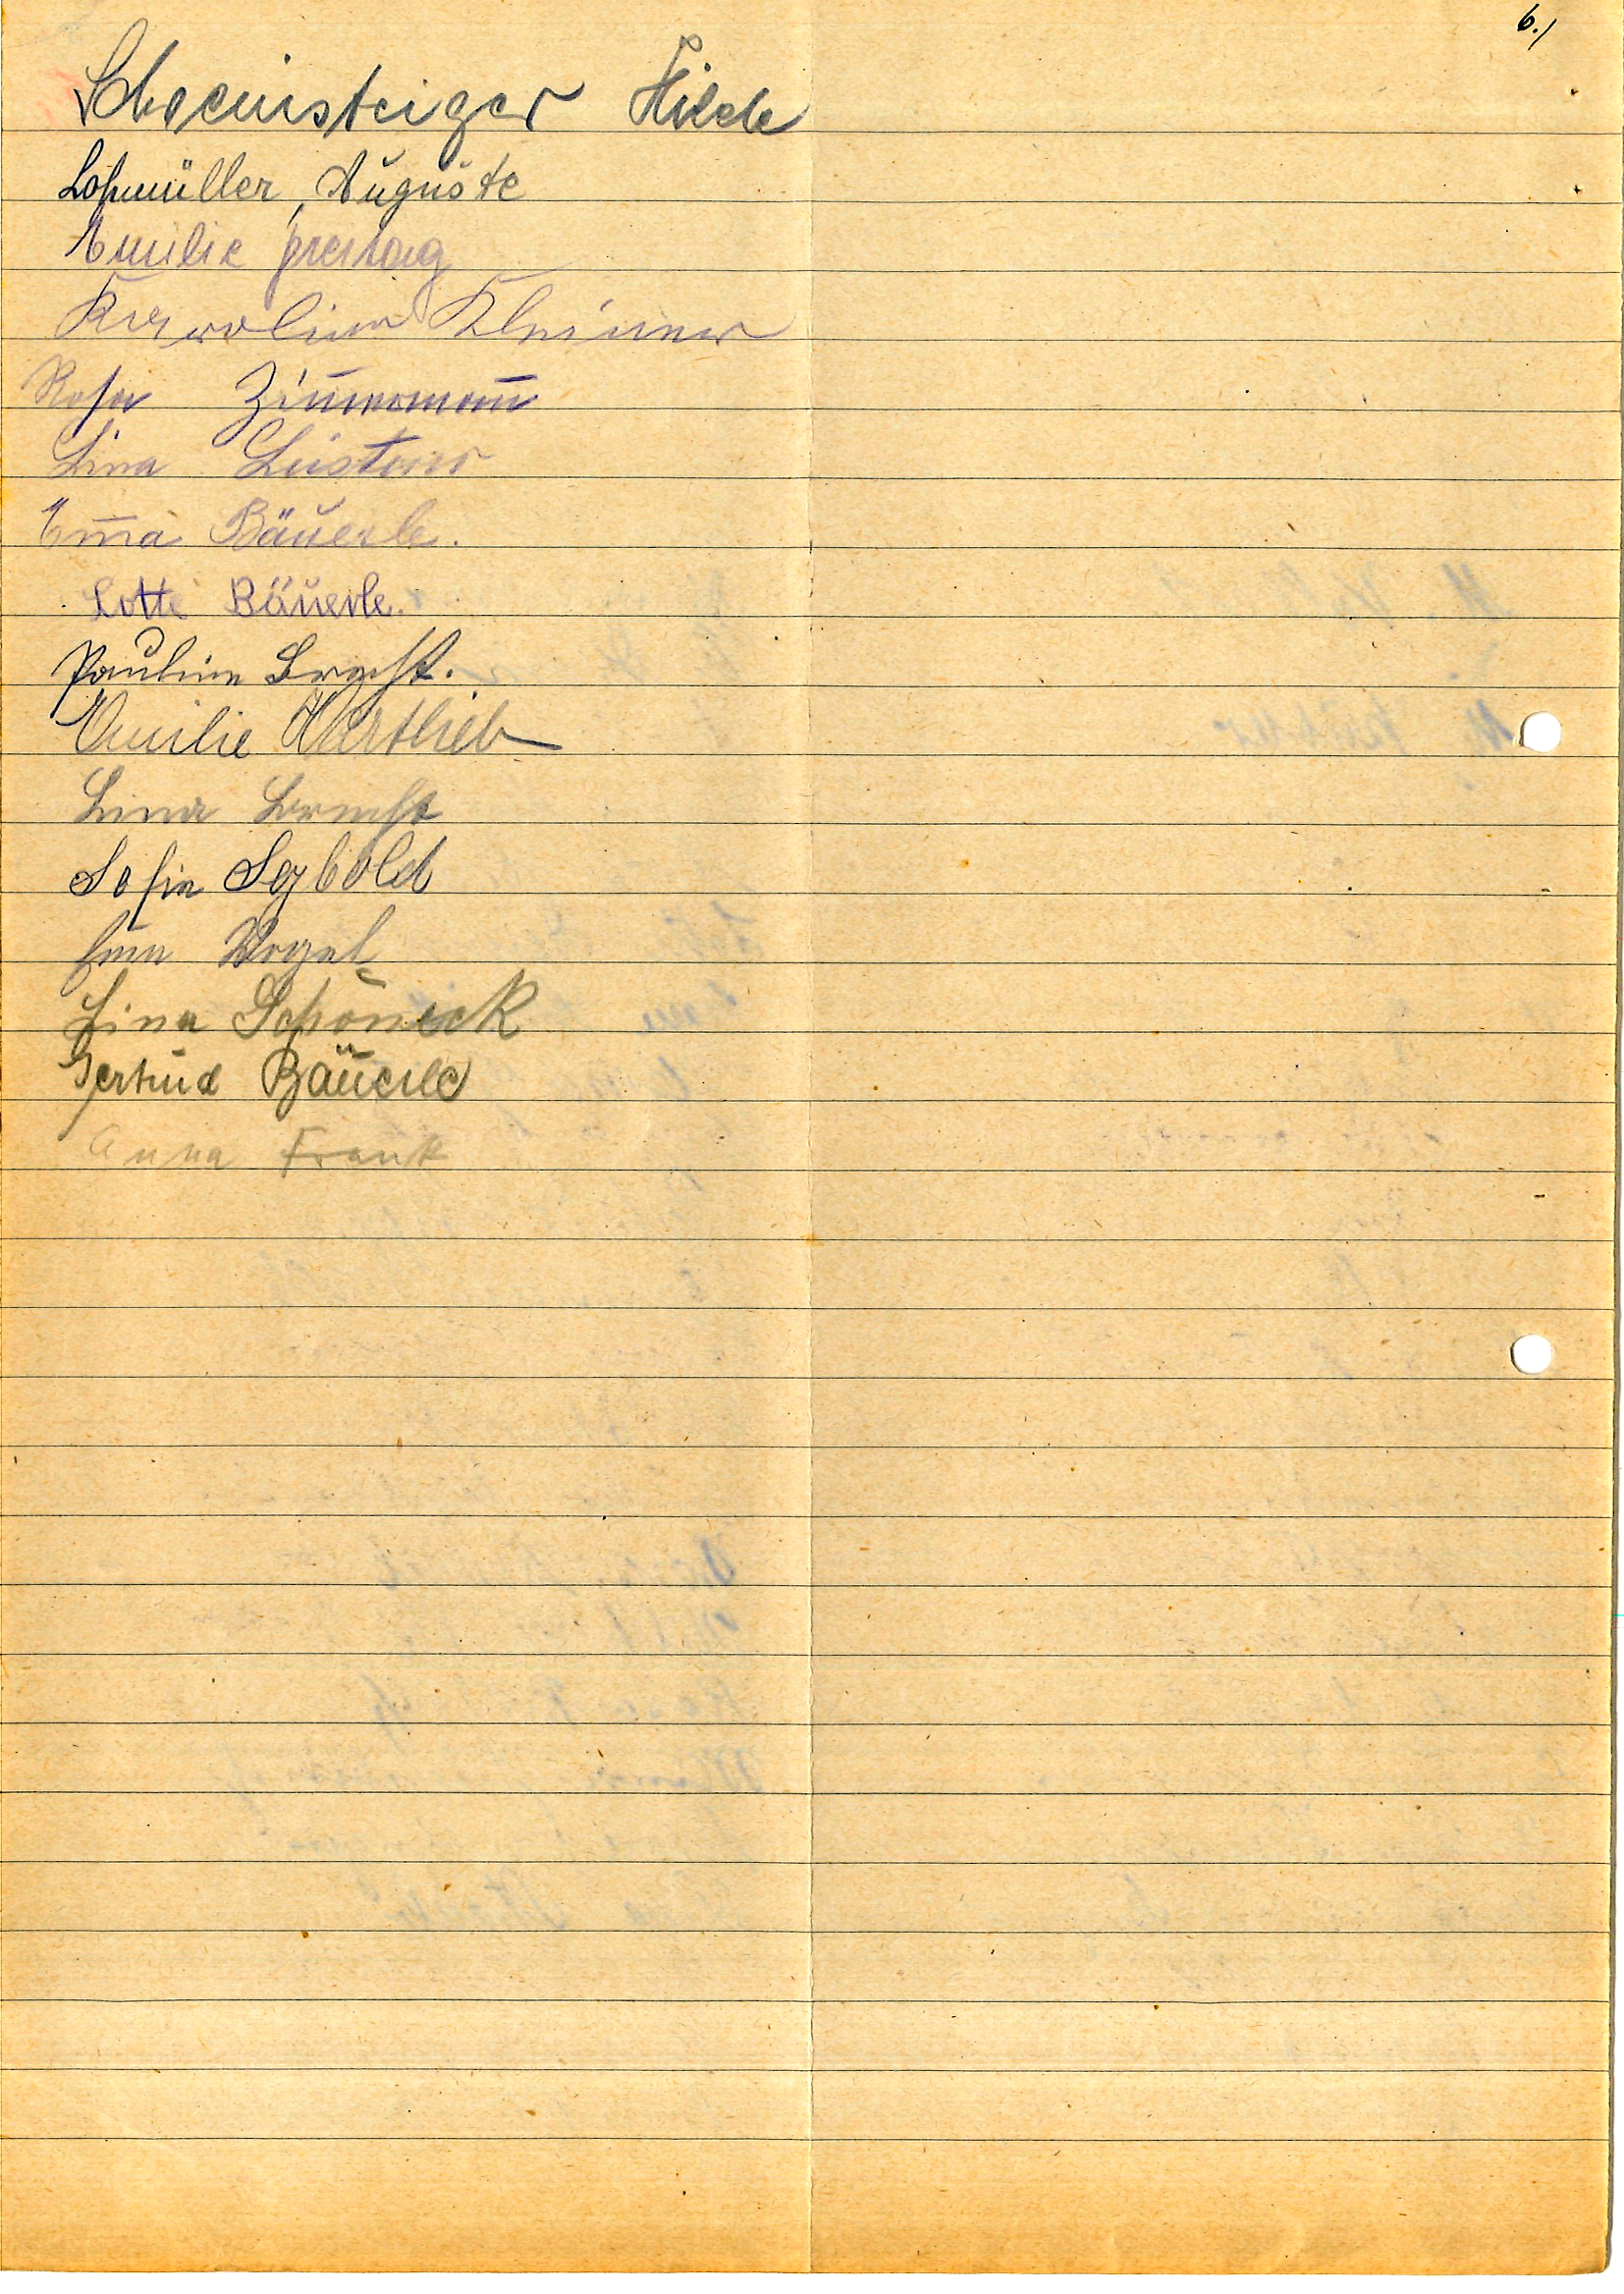 6./
Schweinsteiger Hilde
Lohmüller, Auguste
Emilie Freitag
Karoline Kleiner
Rosa Zim̅erman̅
Lina
Em̅a Bäuerle.
Lotte Bäuerle.
Pauline Brecht.
Emilie Hartlieb
Lina Brecht
Sofie Seybold
Vogel
Lina Schöneck
Gertrud Bäuerle
Anna Frank